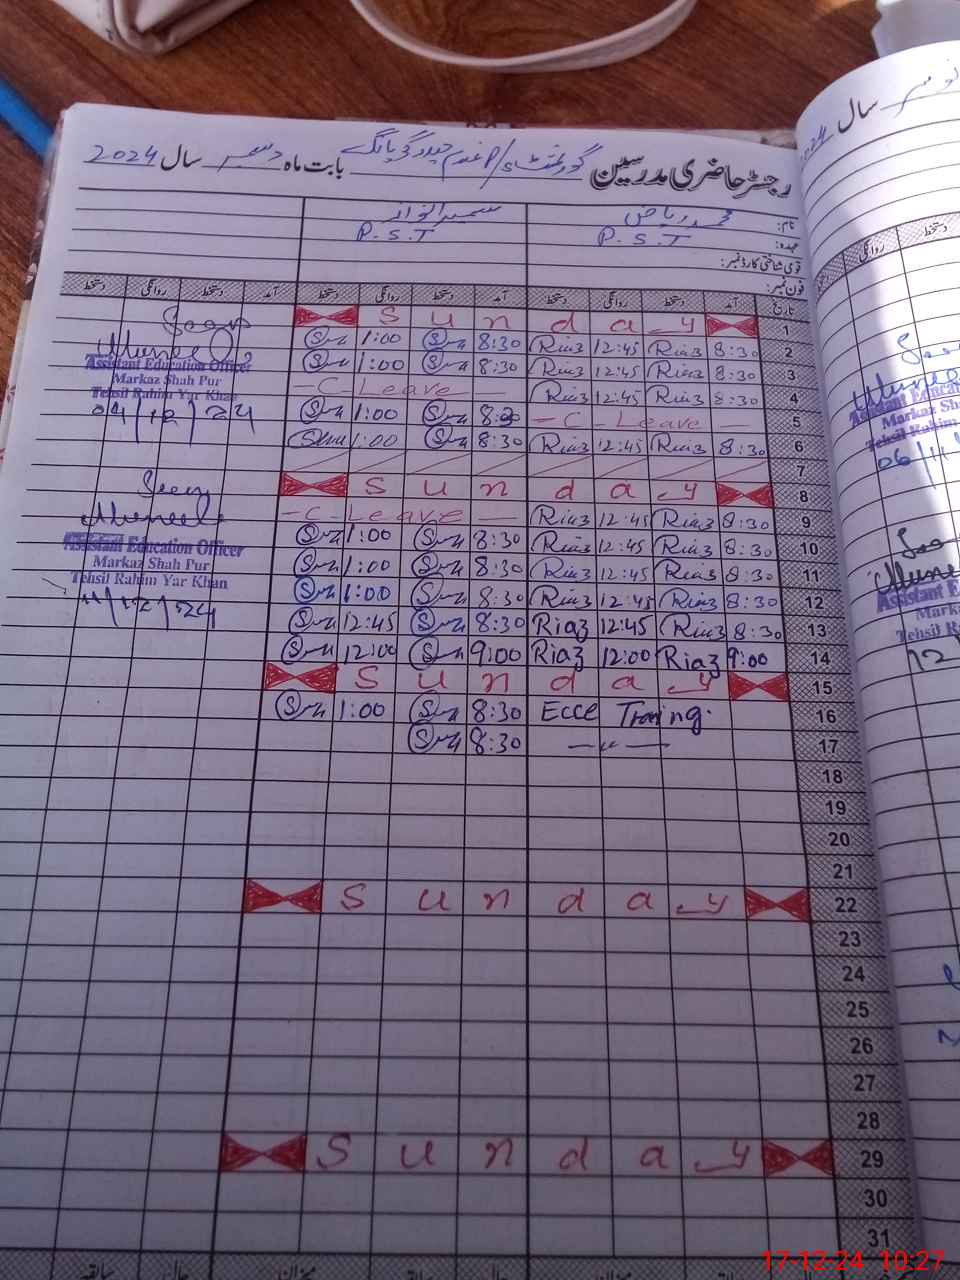 رجسٹر حاضری مدرسین گورنمنٹ بابت ماہ دسمبر سال 2024
نام: محمد ریاض
عہدہ: P.S.T P.S.T
قومی شناختی کارڈ نمبر:
فون نمبر:
تاریخ آمد دستخط روانگی دستخط آمد دستخط روانگی دستخط آمد دستخط روانگی دستخط
S u n d a y 1
1:00 8:30 Riaz 12:45 Riaz 8:30 2
1:00 8:30 Riaz 12:45 Riaz 8:30 3
-C Leave- Riaz 12:45 Riaz 8:30 4
1:00 8:30 -C- Leave- 5
1:00 8:30 Riaz 12:45 Riaz 8:30 6
7
S u n d a y 8
-C- Leave - Riaz 12:45 Riaz 8:30 9
1:00 8:30 Riaz 12:45 Riaz 8:30 10
1:00 8:30 Riaz 12:45 Riaz 8:30 11
1:00 8:30 Riaz 12:45 Riaz 8:30 12
12:45 8:30 Riaz 12:45 Riaz 8:30 13
12:00 9:00 Riaz 12:00 Riaz 9:00 14
S u n d a y 15
1:00 8:30 Ecce Traning. 16
8:30 —〃— 17
18
19
20
21
S u n d a y 22
23
24
25
26
27
28
S u n d a y 29
30
31
Seen
Assistant Education Officer
Markaz Shah Pur
Tehsil Rahim Yar Khan
04/12/24
Seen
Assistant Education Officer
Markaz Shah Pur
Tehsil Rahim Yar Khan
11/12/24
نومبر سال 2024
روانگی دستخط
Seen
Assistant Educatio
Markaz Shah P
Tehsil Rahim Y
06/11
Seen
Assistant E
Marka
Tehsil Ra
12
17-12-24 10:27